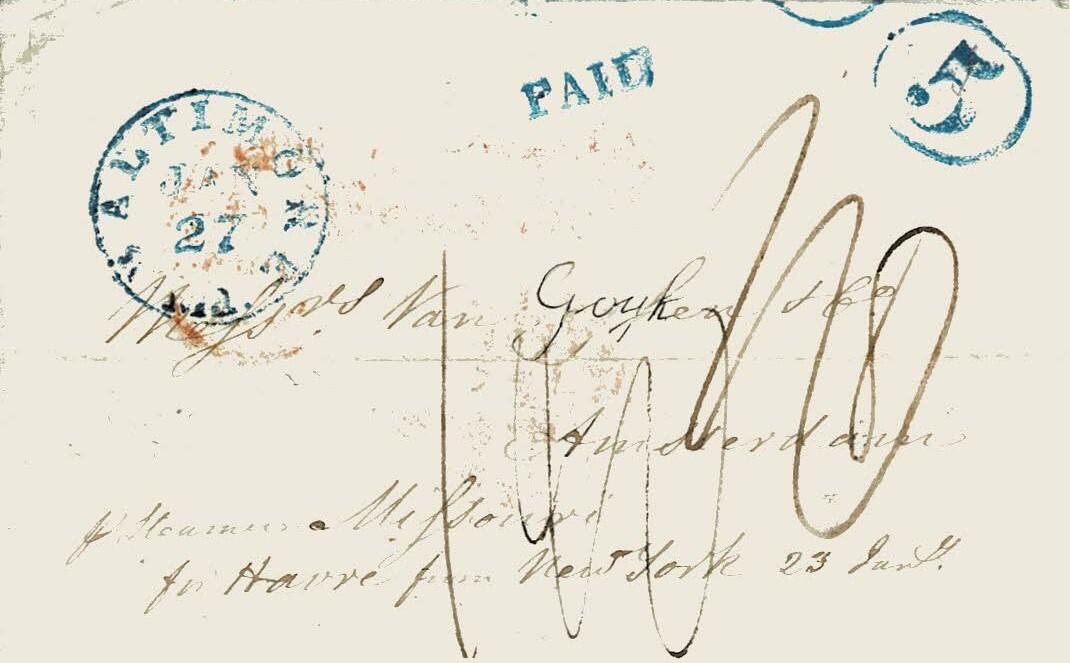 5
PAID
BALTIMORE
JAN
27
Md.
Messrs Van Goyken & Co
Amsterdam
pr Steamer Missouri
for Havre from New York 23 Jany.